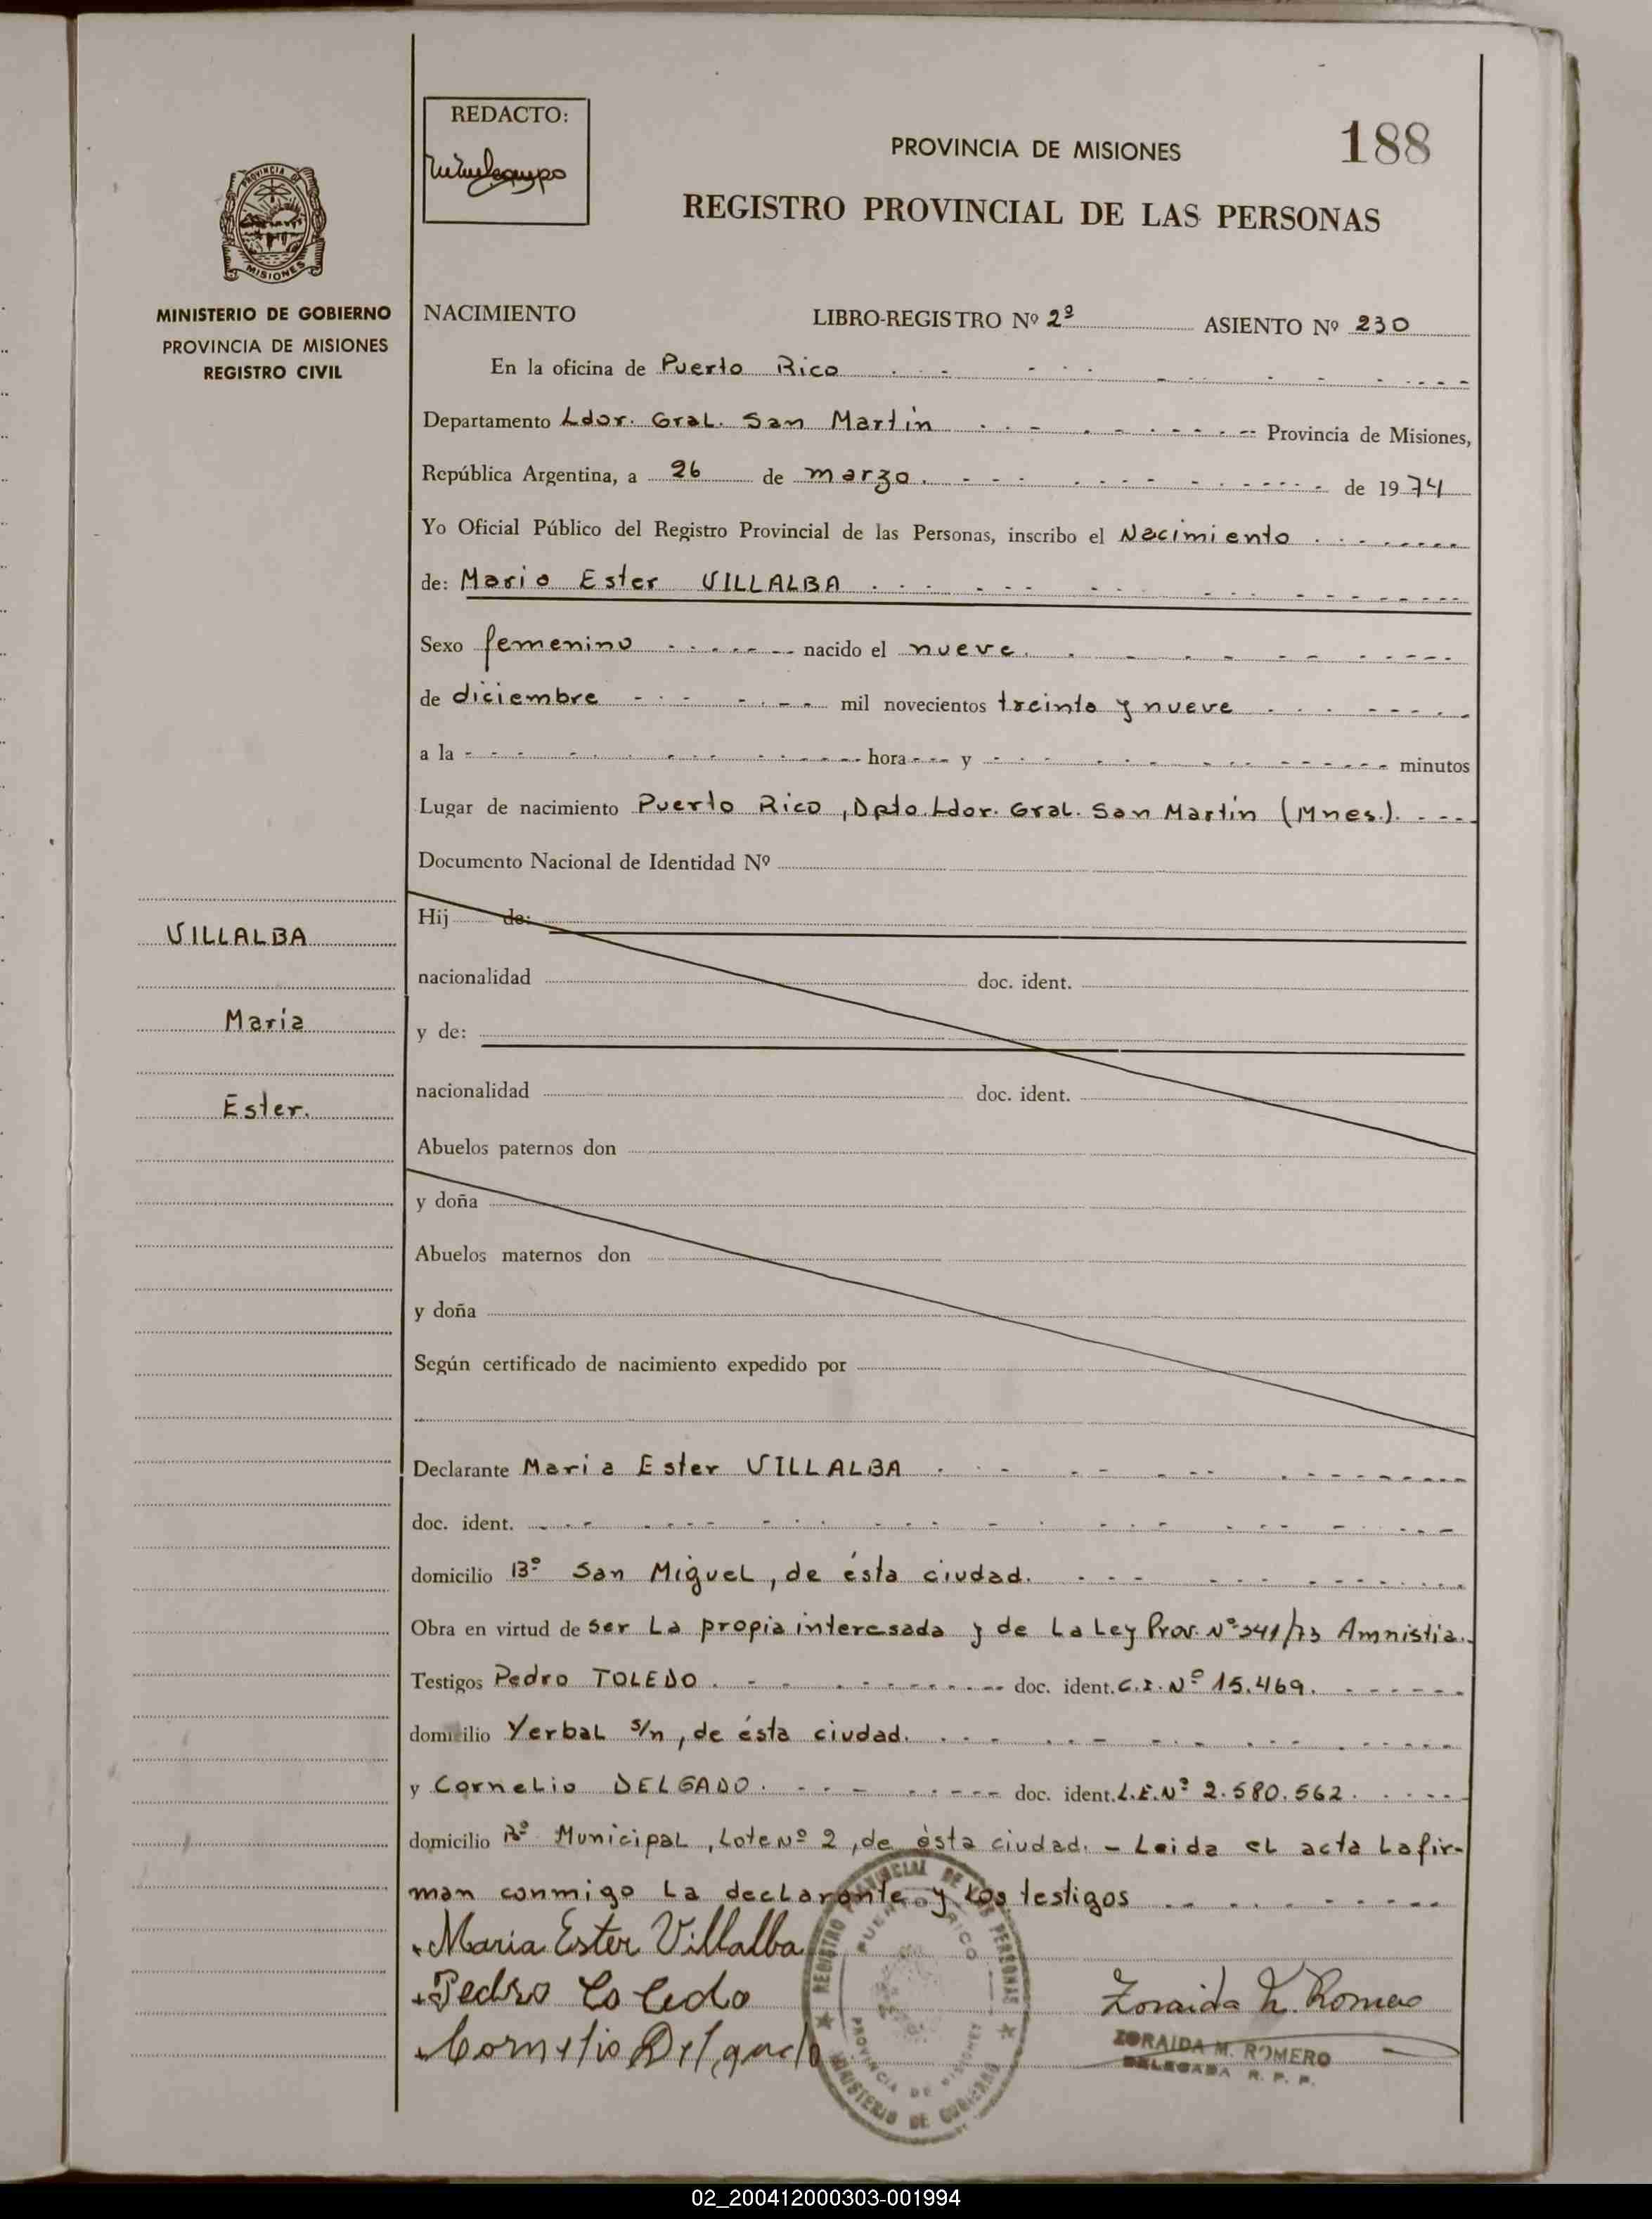 REDACTO:
188
PROVINCIA DE MISIONES
REGISTRO PROVINCIAL DE LAS PERSONAS
PROVINCIA DE
MISIONES
MINISTERIO DE GOBIERNO
PROVINCIA DE MISIONES
REGISTRO CIVIL
NACIMIENTO LIBRO-REGISTRO Nº 2º ASIENTO Nº 230
En la oficina de Puerto Rico
Departamento Ldor. Gral. San Martín Provincia de Misiones,
República Argentina, a 26 de marzo. de 1974
Yo Oficial Público del Registro Provincial de las Personas, inscribo el Nacimiento
de: Maria Ester VILLALBA
Sexo femenino nacido el nueve.
de diciembre mil novecientos treinta y nueve
a la hora y minutos
Lugar de nacimiento Puerto Rico, Dpto. Ldor. Gral. San Martín (Mnes.).
Documento Nacional de Identidad Nº
Hij de:
VILLALBA
nacionalidad doc. ident.
María
y de:
nacionalidad doc. ident.
Ester.
Abuelos paternos don
y doña
Abuelos maternos don
y doña
Según certificado de nacimiento expedido por
Declarante Maria Ester VILLALBA
doc. ident.
domicilio Bº San Miguel, de ésta ciudad.
Obra en virtud de ser La propia interesada y de La Ley Prov. Nº 341/73 Amnistia.
Testigos Pedro TOLEDO. doc. ident. C.I. Nº 15.469.
domicilio Yerbal s/n, de ésta ciudad.
y Cornelio DELGADO. doc. ident. L.E. Nº 2.580.562.
domicilio Bº Municipal, Lote Nº 2, de ésta ciudad. - Leida el acta La fir-
man conmigo La declarante y Los testigos
Maria Ester Villalba
Pedro Toledo
Cornelio Delgado
REGISTRO PROVINCIAL DE LAS PERSONAS
PUERTO RICO
PROVINCIA DE MISIONES
MINISTERIO DE GOBIERNO
Zoraida M. Romero
ZORAIDA M. ROMERO
DELEGADA R. P. P.
02_200412000303-001994